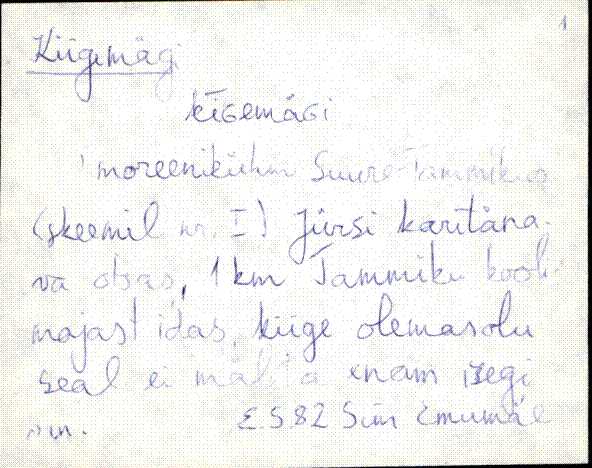 1
Kiigemägi
kīGemäGi
moreenikühm Suure-Tammikus
(skeemil nr. I) Jürsi karitäna-
va otsas, 1 km Tammiku kooli-
majast idas, kiige olemasolu
seal ei mäleta enam isegi
E.S. 82 Siim Emumäe